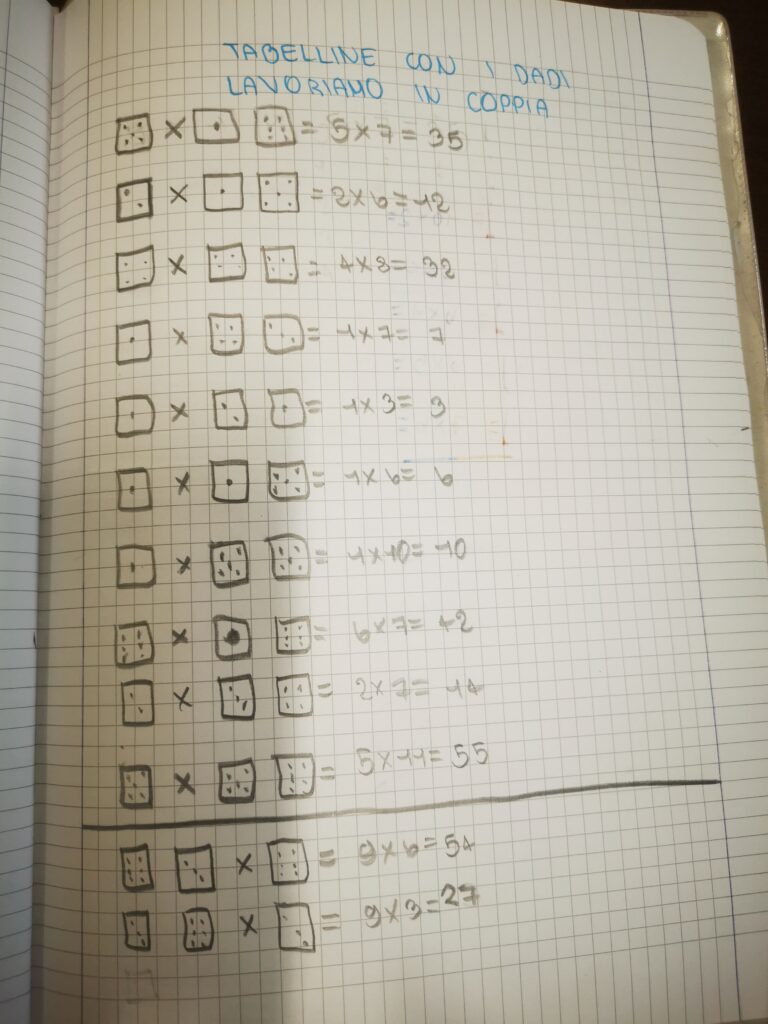 TABELLINE CON I DADI
LAVORIAMO IN COPPIA
× = 5×7= 35
× = 2×6=12
× = 4×8= 32
× = 1×7= 7
× = 1×3= 3
× = 1×6= 6
× = 1×10= 10
× = 6×7= 42
× = 2×7= 14
× = 5×11= 55
× = 9×6=54
× = 9×3=27